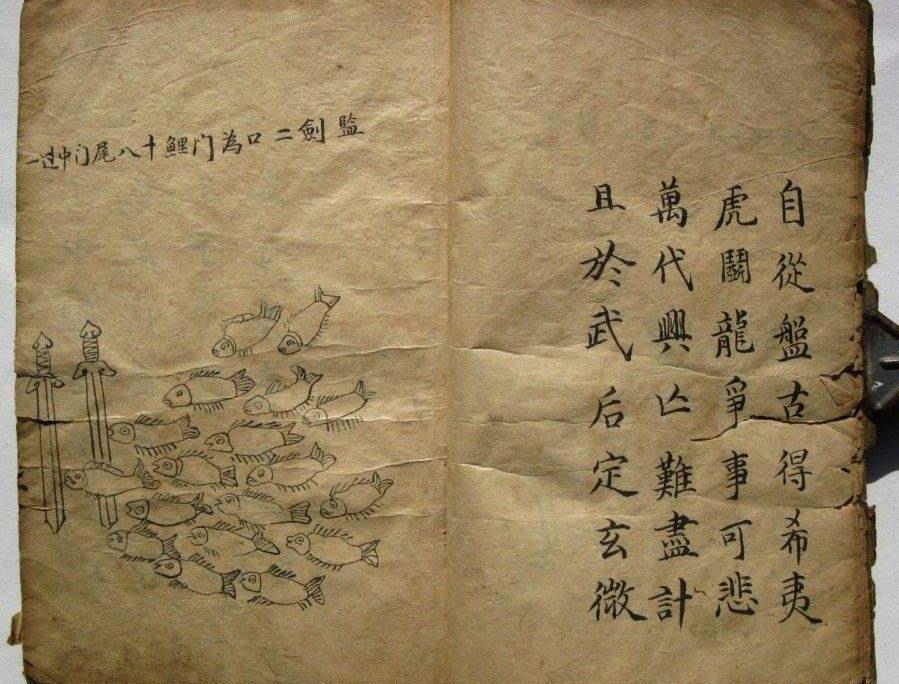 自從盤古得希夷
虎鬪龍爭事可悲
萬代興亡難盡計
且於武后定玄微
監劍二口為门鯉十八尾门中过一